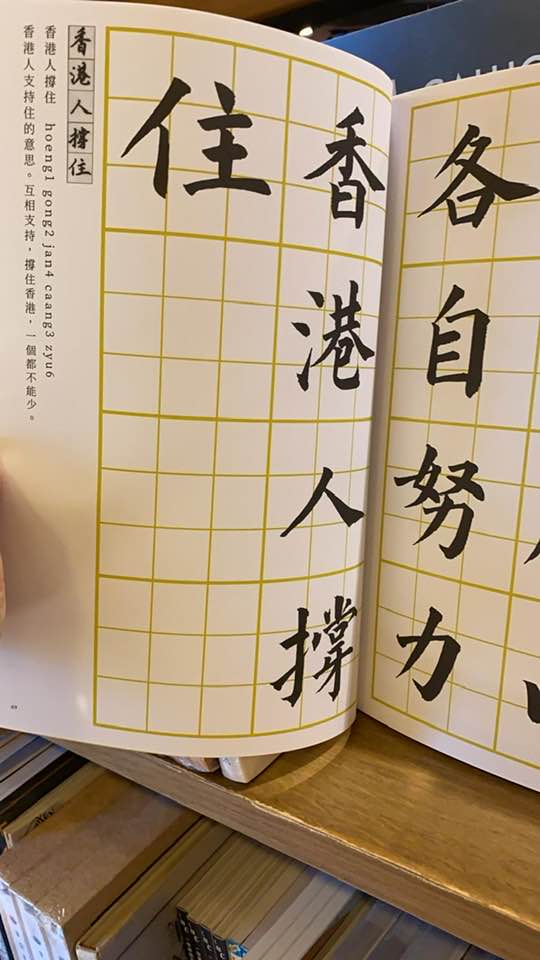 各自努力
香港人撐
住
香港人撐住
香港人撐住 hoeng1 gong2 jan4 caang3 zyu6
香港人支持住的意思。互相支持，撐住香港，一個都不能少。